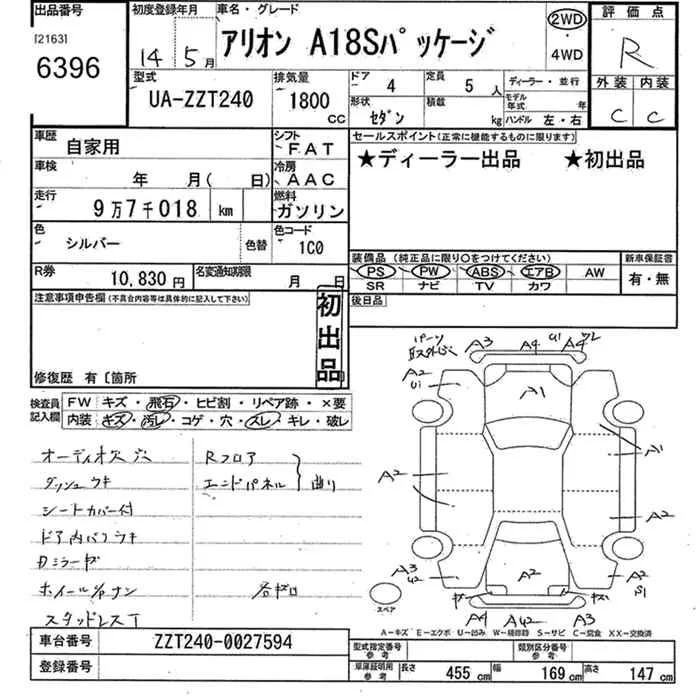 出品番号
[2163]
6396
初度登録年月
14 5月
車名・グレード
アリオン A18Sパッケージ
2WD
・
4WD
評価点
R
外装 内装
C C
型式
UA-ZZT240
排気量
1800
CC
ドア
4
定員
5 人
ディーラー・並行
形状
セダン
積載
kg
モデル年式
年
ハンドル 左・右
車歴
自家用
シフト
FAT
車検
年 月( 日)
冷房
AAC
走行
9万7千018 km
燃料
ガソリン
色
シルバー
色替
色コード
1C0
R券
10,830 円
名変通知期限
月 日
セールスポイント(正常に機能するものに限ります)
★ディーラー出品 ★初出品
装備品 (純正品に限り○をつけてください)
PS PW ABS エアB AW
SR ナビ TV カワ
新車保証書
有・無
後日品
注意事項申告欄(不具合内容等は具体的に記入して下さい)
初出品
修復歴 有〔箇所
検査員記入欄
FW キズ・飛石・ヒビ割・リペア跡・×要
内装 キズ・汚レ・コゲ・穴・スレ・キレ・破レ
オーディオ欠 穴
ダッシュ ウキ
シートカバー付
ドア内バリ ウキ
ホイール ナシ
スタッドレスT
Rフロア
エンドパネル
曲り
各ゼロ
A3 A4 U1 A4
A2 U1
A1
A1
A2
A2
A3 U2
A2
A2 S1
A4 A U2 A3
スペア
A−キズ E−エクボ U−凹み W−補修跡 S−サビ C−腐食 XX−交換済
車台番号
ZZT240-0027594
登録番号
型式指定番号
参考
類別区分番号
参考
車庫証明用
参考
長さ 455 cm
幅 169 cm
高さ 147 cm